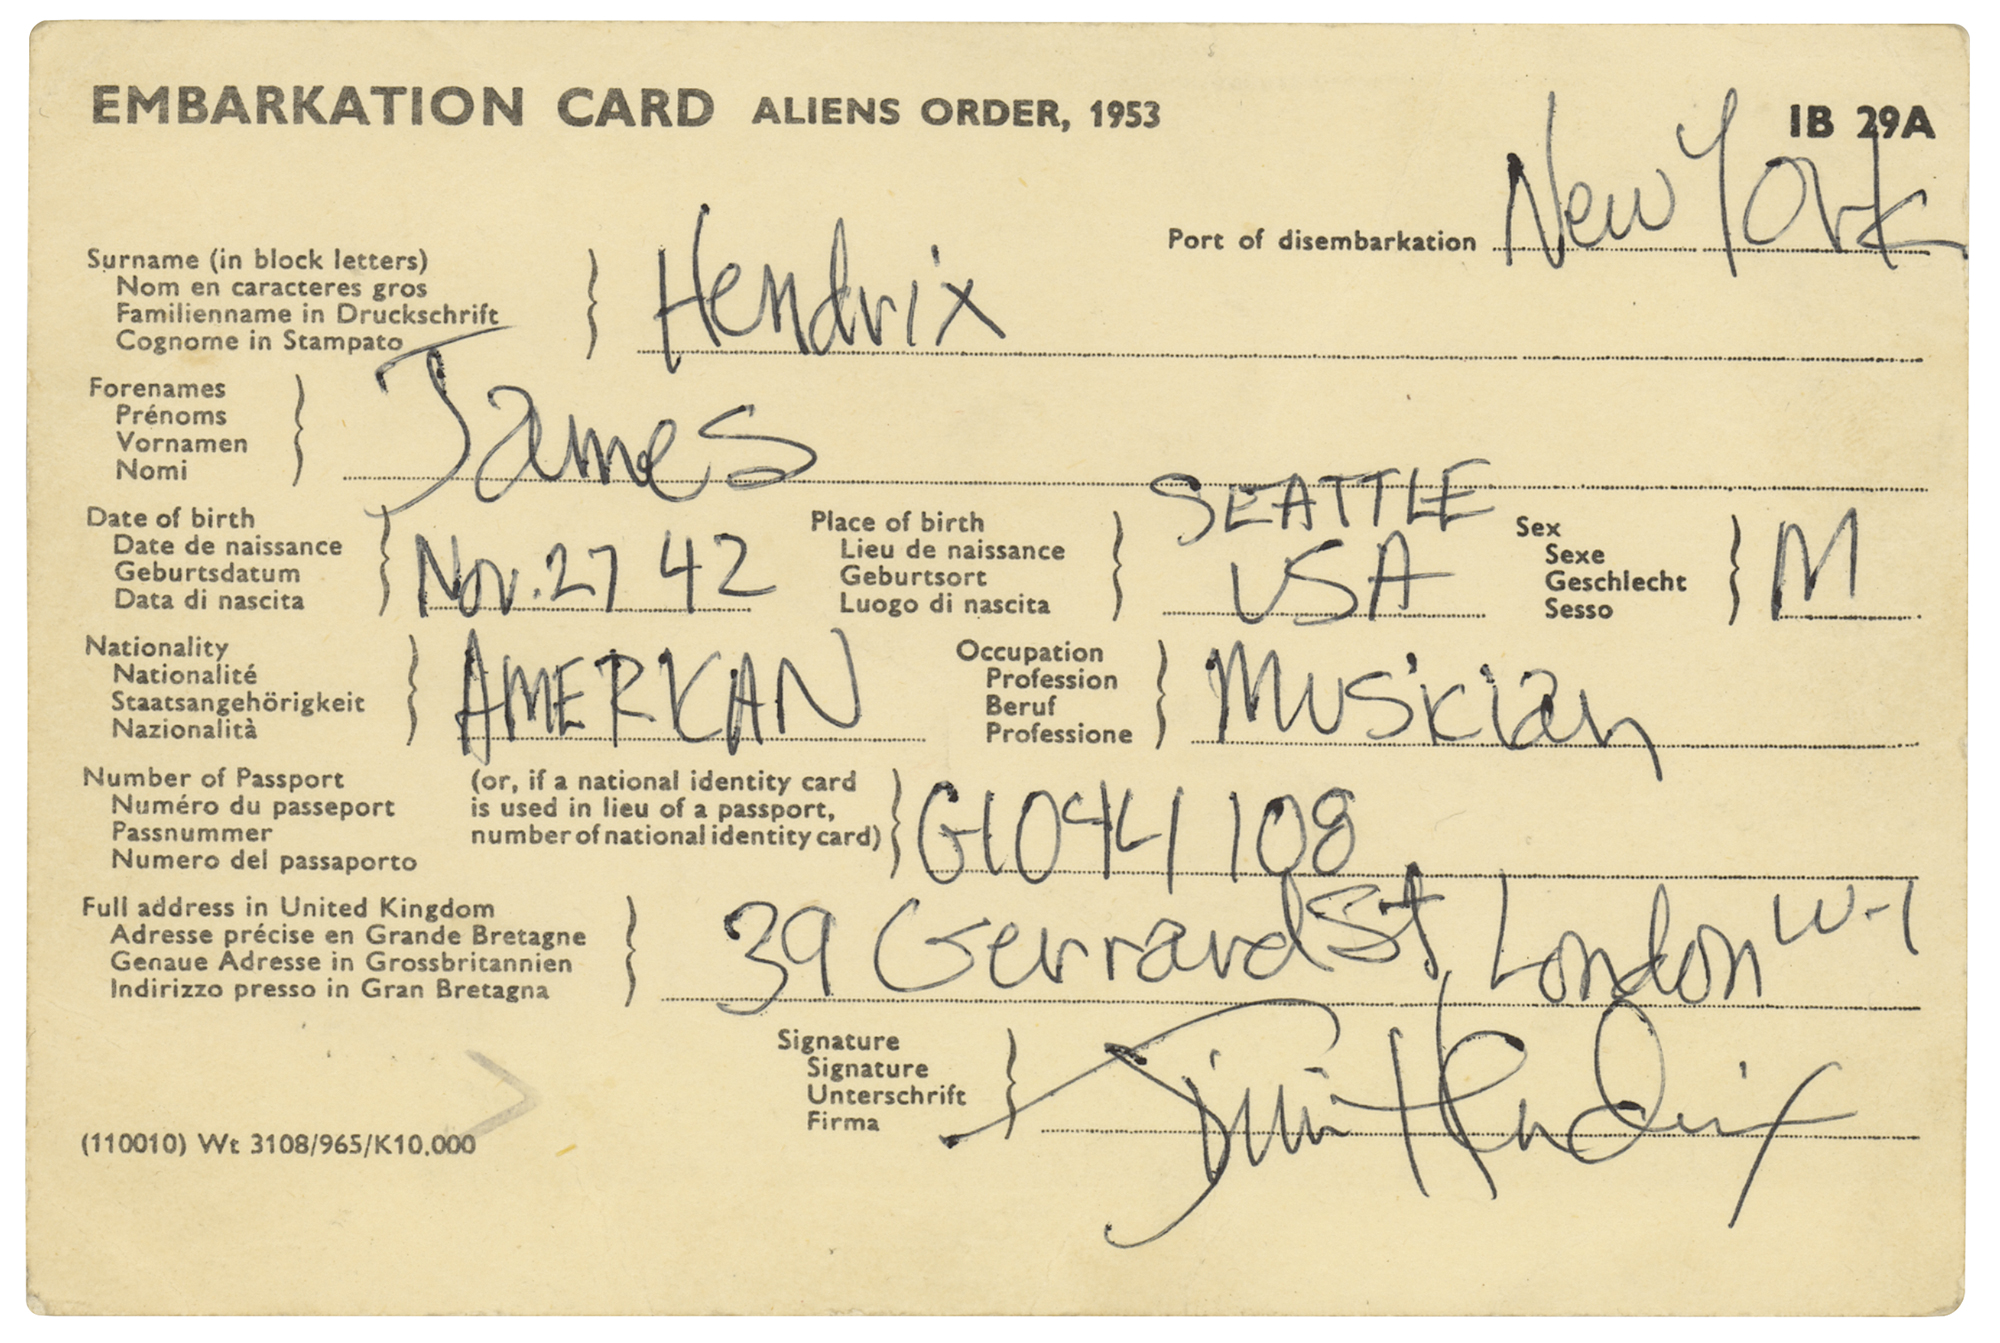 EMBARKATION CARD ALIENS ORDER, 1953
IB 29A
Port of disembarkation New York
Surname (in block letters)
Nom en caracteres gros
Familienname in Druckschrift
Cognome in Stampato
Hendrix
Forenames
Prénoms
Vornamen
Nomi
James
Date of birth
Date de naissance
Geburtsdatum
Data di nascita
Nov. 27 42
Place of birth
Lieu de naissance
Geburtsort
Luogo di nascita
SEATTLE
USA
Sex
Sexe
Geschlecht
Sesso
M
Nationality
Nationalité
Staatsangehörigkeit
Nazionalità
AMERICAN
Occupation
Profession
Beruf
Professione
Musician
Number of Passport
Numéro du passeport
Passnummer
Numero del passaporto
(or, if a national identity card
is used in lieu of a passport,
number of national identity card)
G1044108
Full address in United Kingdom
Adresse précise en Grande Bretagne
Genaue Adresse in Grossbritannien
Indirizzo presso in Gran Bretagna
39 Gerrard St London W-1
Signature
Signature
Unterschrift
Firma
Jimi Hendrix
(110010) Wt 3108/965/K10.000